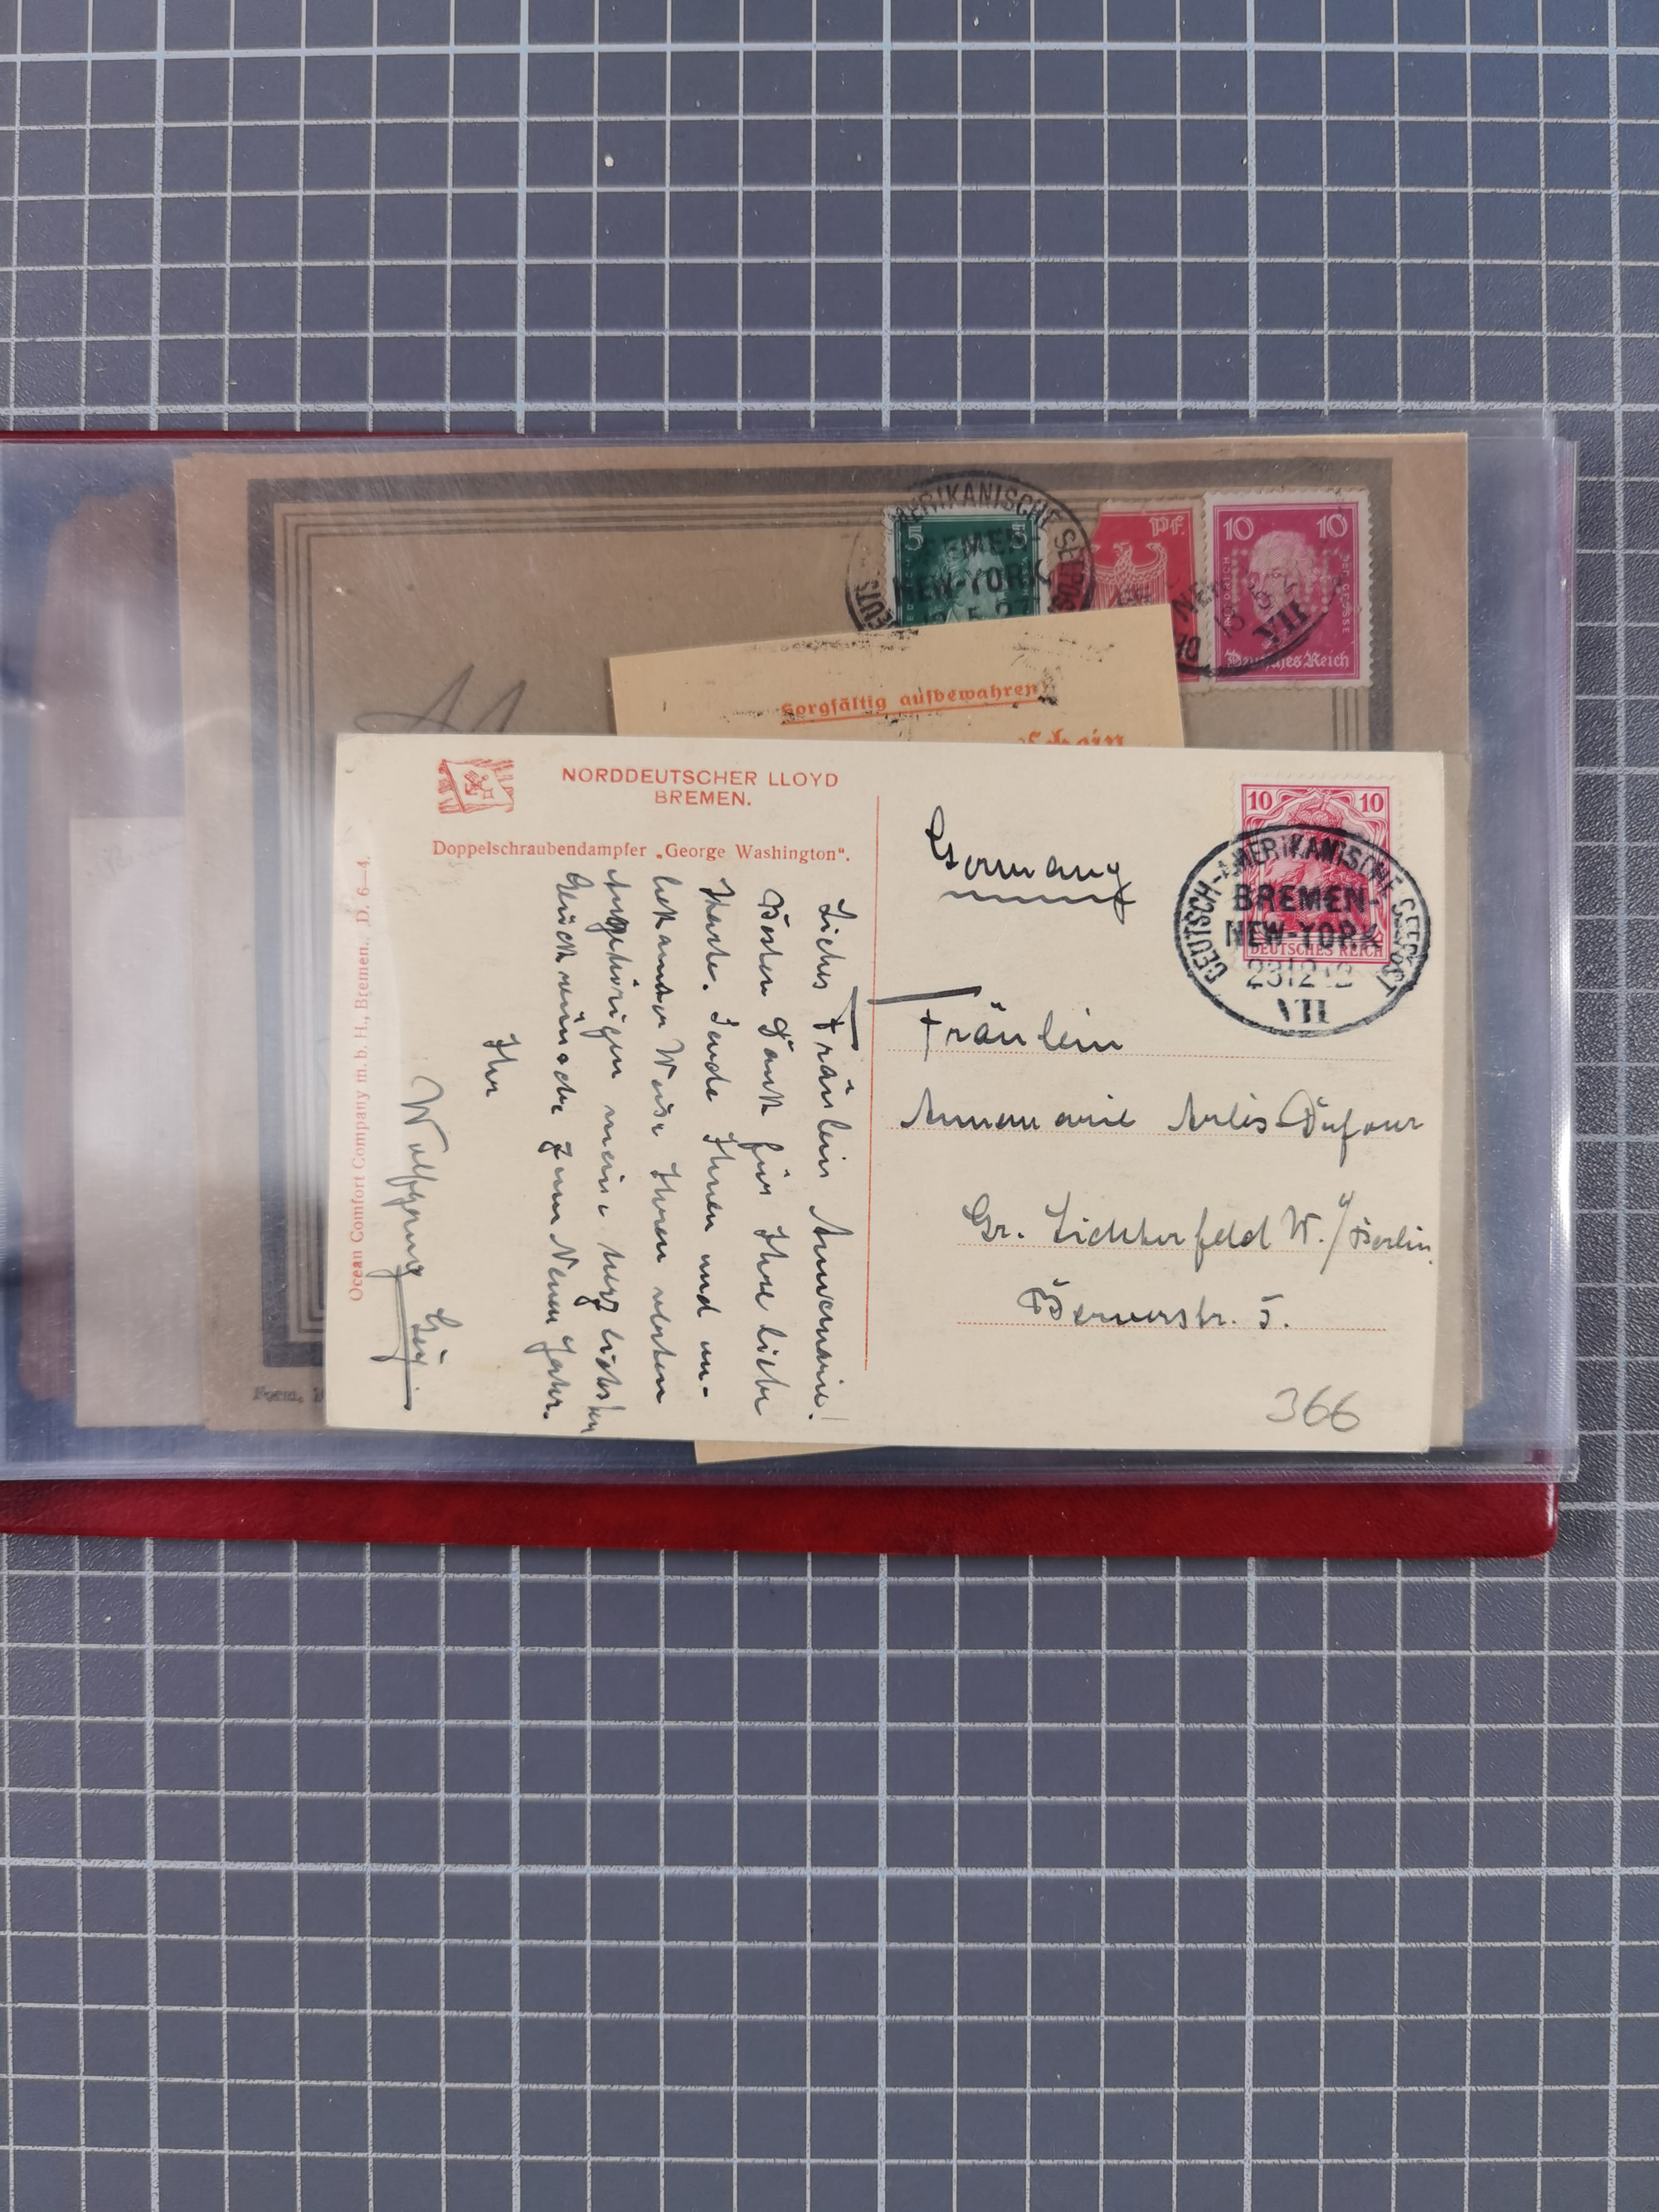 AMERIKANISCHE SEEPOS
DEUTS
BREMEN-
NEW-YORK
5.27
5 5
Pf.
10 10
FRIEDRICH DER GROSSE
Deutsches Reich
VII
Sorgfältig aufbewahren!
Schein
NORDDEUTSCHER LLOYD
BREMEN.
Doppelschraubendampfer „George Washington".
Ocean Comfort Company m. b. H., Bremen. D. 6—4.
Liebes Fräulein Annemarie!
Besten Dank für Ihre liebe
Karte. Sende Ihnen und un-
bekannter Weise Ihren werten
Angehörigen meine herzlichsten
Glückwünsche zum Neuen Jahr.
Ihr
Wolfgang
Germany
10 10
DEUTSCHES REICH
DEUTSCH-AMERIKANISCHE SEEPOST
BREMEN-
NEW-YORK
2312 12
VII
Fräulein
Annemarie Arlès-Dufour
Gr. Lichterfelde W. / Berlin.
str. 5.
366
Form.